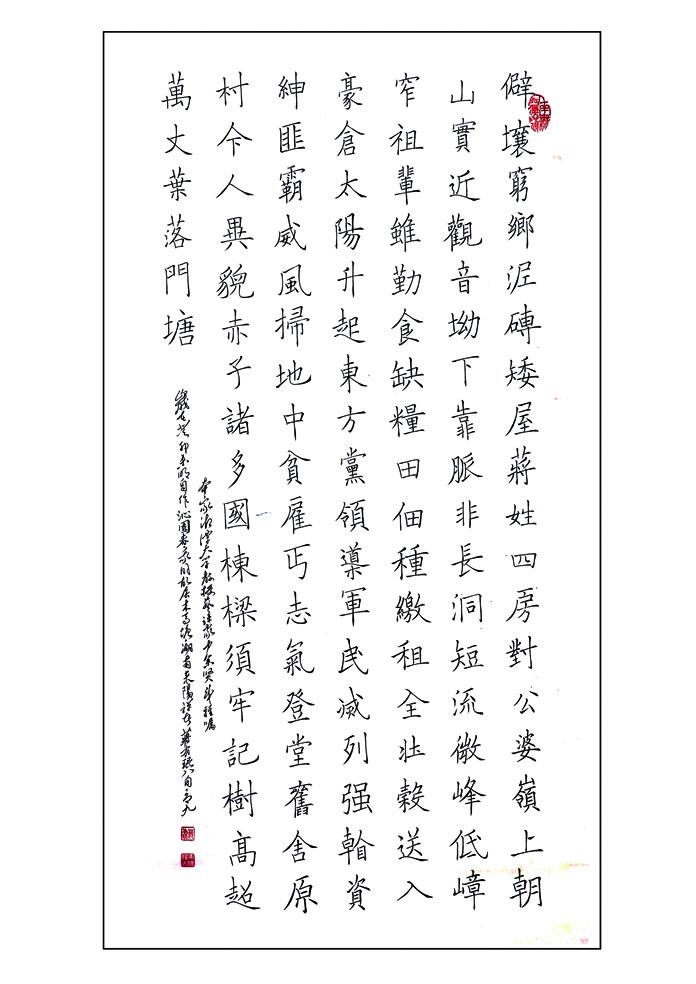 僻壤窮鄉泥磚矮屋蔣姓四房對公婆嶺上朝
山實近觀音坳下靠脈非長洞短流微峰低嶂
窄祖輩雖勤食缺糧田佃種繳租全壯穀送入
豪倉太陽升起東方黨領導軍民滅列强資
紳匪霸威風掃地中貧雇丐志氣登堂舊舍原
村今人異貌赤子諸多國棟樑須牢記樹高超
萬丈葉落門塘
歲在癸卯自作沁園春湖南耒陽八旬